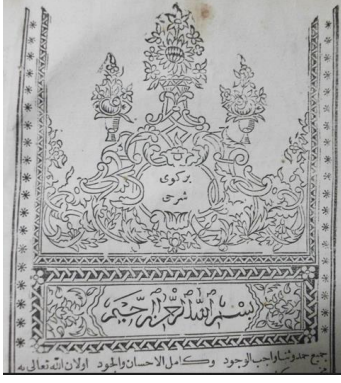 بركوى
شرحى
بسم الله الرحمن الرحيم
جميع حمد وثنا واجب الوجود وكامل الاحسان والجود اولان الله تعالى يه